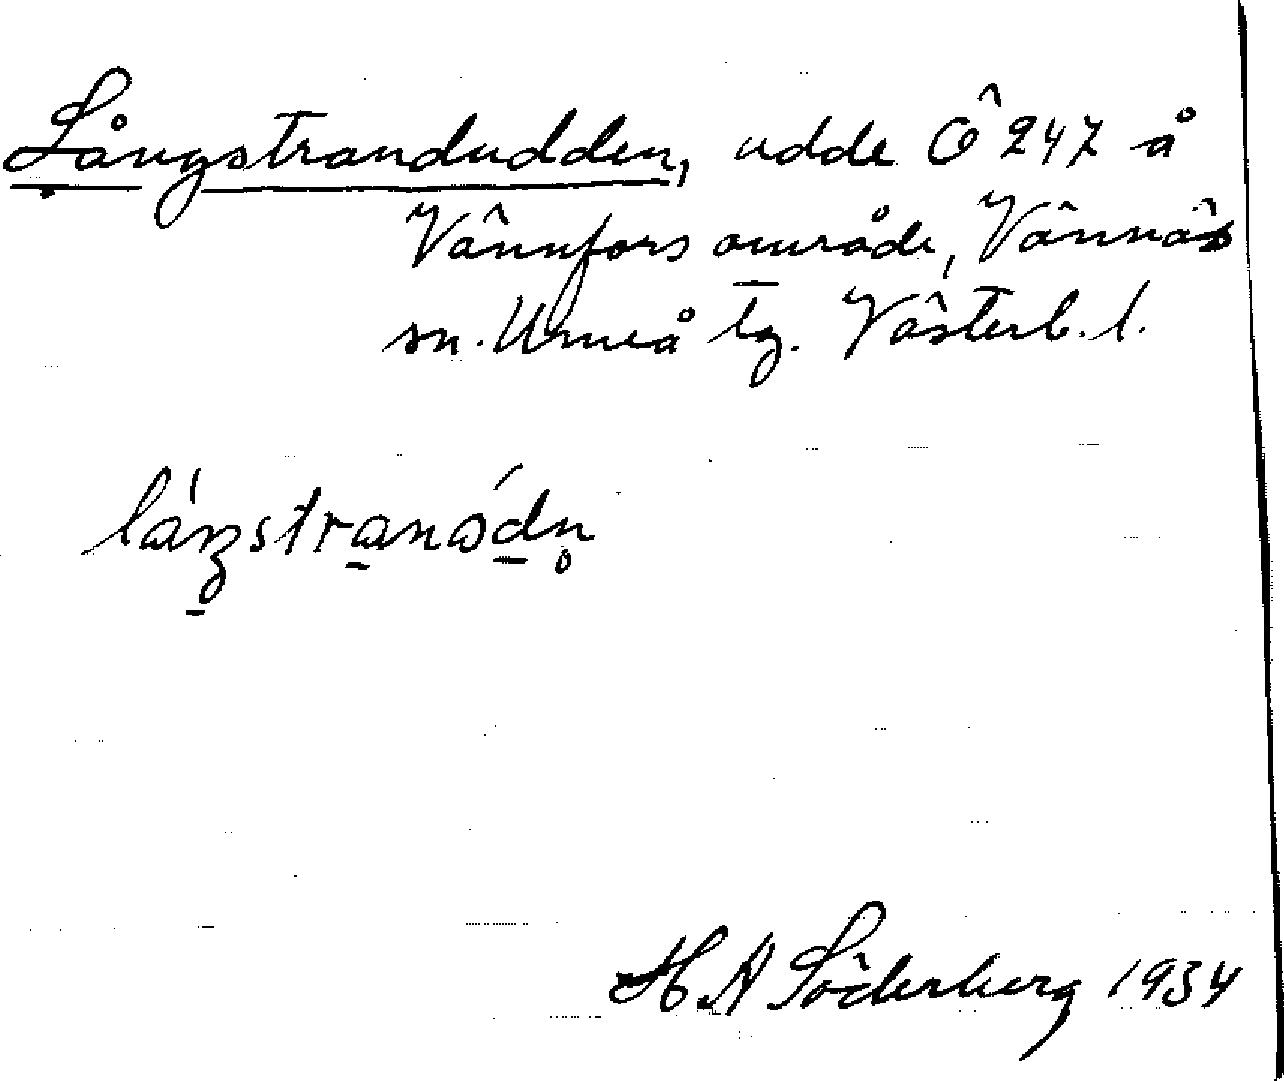 Långstrandudden, udde Ö 247 å
Vännfors område, Vännäs
sn. Umeå tg. Västerb. l.
H A Söderberg 1934